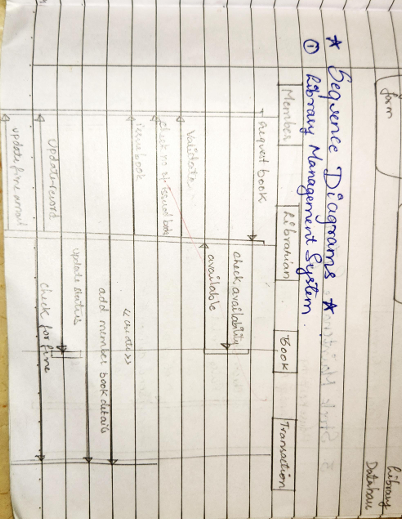 form
Library
Database
* Sequence Diagrams *
① Library Management System.
Member
Librarian
Book
Transaction
request book
check availability
available
Validate
issue book
add member book details
update status
Update record
check for fine